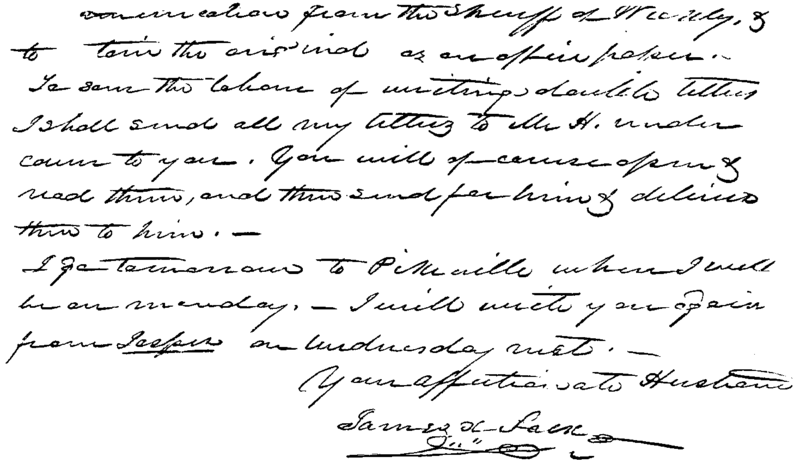 from the Sheriff of Weakly, &
to the original as an office paper. –
To save the labour of writing double letters
I shall send all my letters to Mr H. under
cover to you. You will of course open &
read them, and then send for him & deliver
them to him. –
I go tomorrow to Pikeville where I will
be on monday. – I will write you again
from Jasper on Wednesday next. –
Your affectionate Husband
James K. Polk